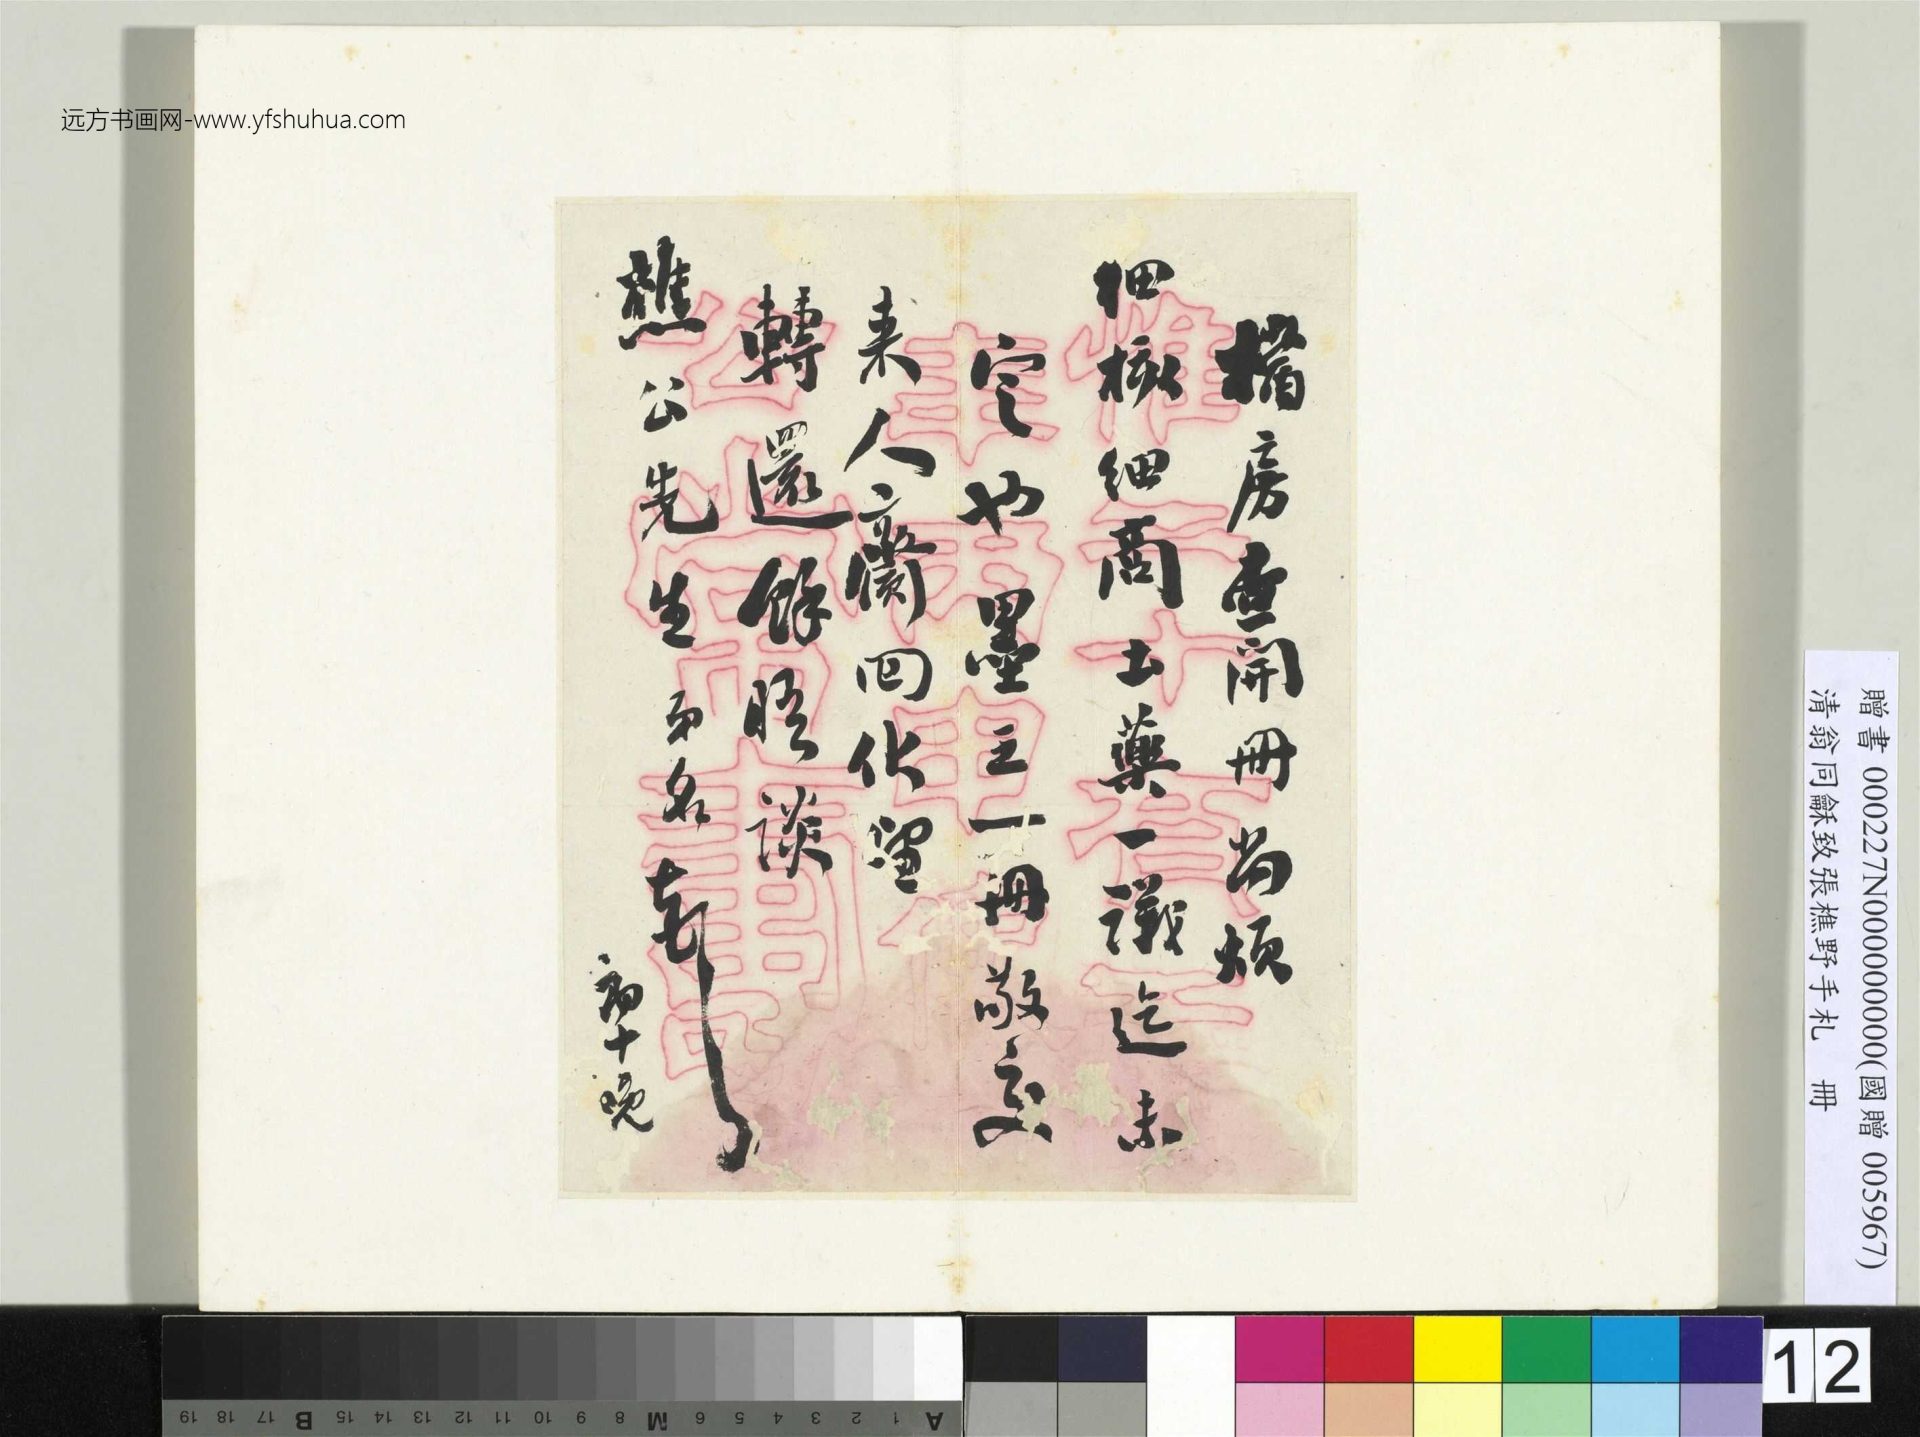 远方书画网-www.yfshuhua.com
檔房查開冊尚煩
細核細商土藥一議迄未
定也墨土一冊敬交
来人齎回代望
轉還餘晤談
樵公先生 弟名
初十晚
贈書 000227N000000000(國贈 005967)
清翁同龢致張樵野手札 冊
12
A 1 2 3 4 5 6 M 8 9 10 11 12 13 14 15 B 17 18 19